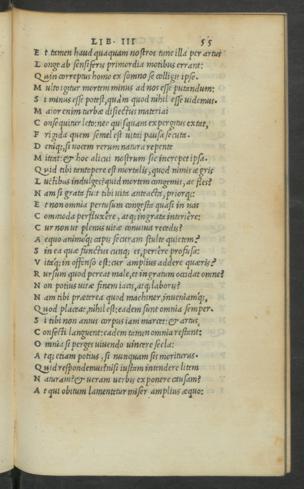 LIB. III 55
E t tamen haud quaquam nostros tunc illa per artus
L onge ab sensiferis primordia motibus errant:
Q uin correptus homo ex somno se colligit ipse.
M ulto igitur mortem minus ad nos esse putandum:
S i minus esse potest, quàm quod nihil esse uidemus.
M aior enim turbæ disiectus materiai
C onsequitur leto: nec quisquam expergitus extat,
F rigida quem semel est uitai pausa secuta.
D eniq; si uocem rerum natura repente
M ittat: & hoc alicui nostrum sic increpet ipsa.
Q uid tibi tantopere est mortalis, quod nimis ægris
L uctibus indulges? quid mortem congemis, ac fles?
N am si grata fuit tibi uita anteacta, priorq;:
E t non omnia pertusum congesta quasi in uas
C ommoda perfluxere, atq; ingrata interiere:
C ur non ut plenus uitæ conuiua recedis?
A equo animoq; capis securam stulte quietem?
S in ea quæ functus cunq; es, periere profusa:
V itaq; in offenso est: cur amplius addere quæris?
R ursum quod pereat male, et ingratum occidat omne?
N on potius uitæ finem facis, atq; laboris?
N am tibi præterea quod machiner, inueniamq;,
Q uod placeat, nihil est: eadem sunt omnia semper.
S i tibi non annis corpus iam marcet: & artus,
C onfecti languent: eadem tamen omnia restant:
O mnia si perges uiuendo uincere secla:
A tq; etiam potius, si nunquam sis moriturus.
Q uid respondemus? nisi iustam intendere litem
N aturam? & ueram uerbis exponere causam?
A t qui obitum lamentetur miser amplius æquo: